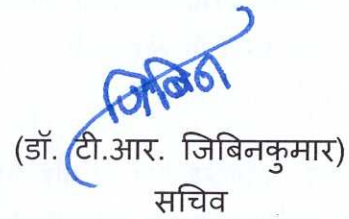 जिबिन
(डॉ. टी.आर. जिबिनकुमार)
सचिव